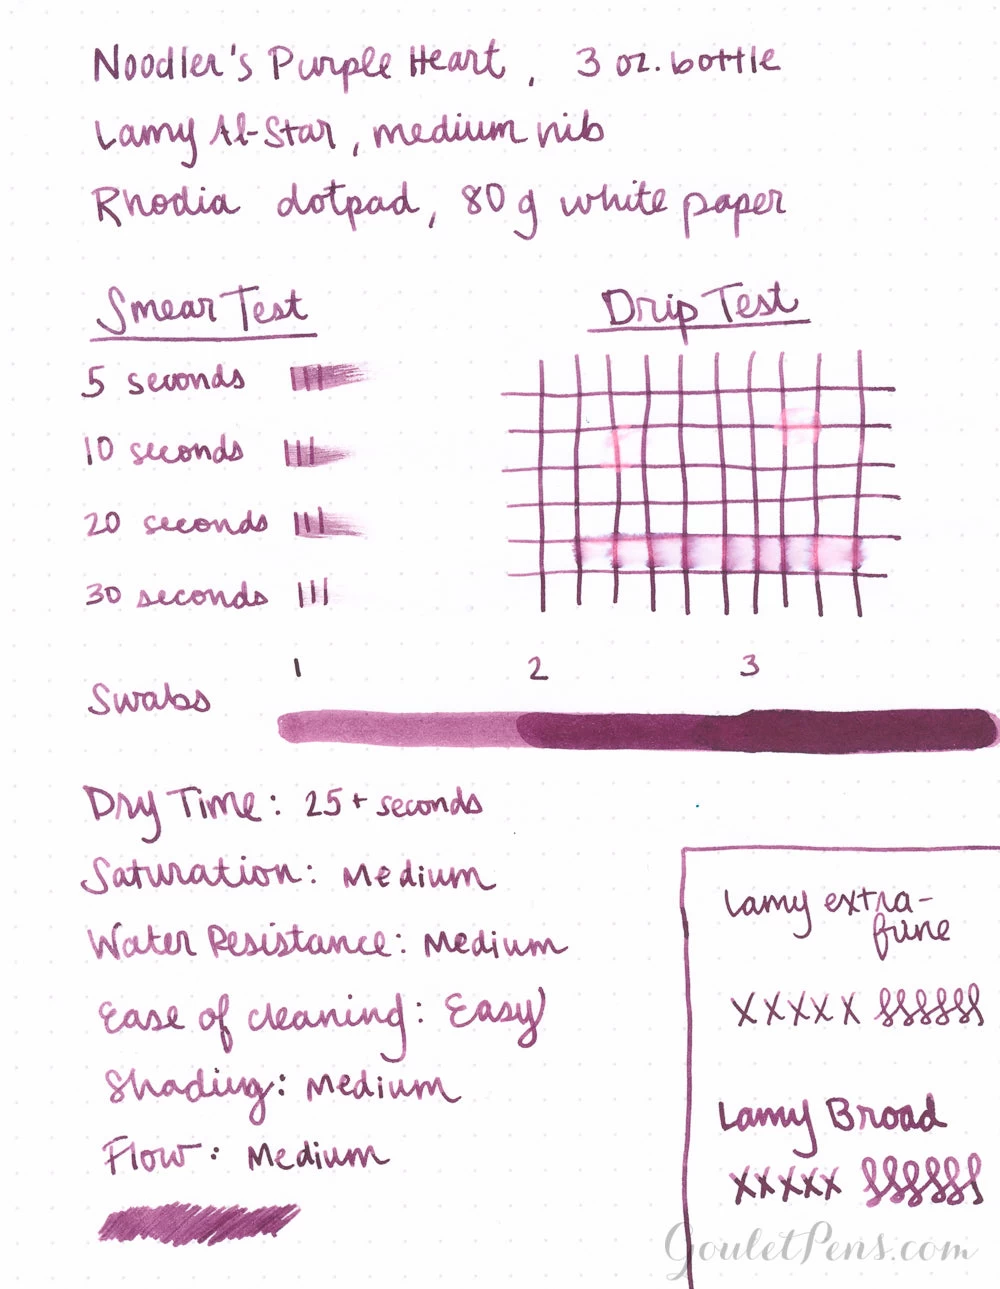 Noodler's Purple Heart, 3 oz. bottle
Lamy Al-Star, medium nib
Rhodia dotpad, 80g white paper
Smear Test
5 seconds
10 seconds
20 seconds
30 seconds
Drip Test
1 2 3
Swabs
Dry Time: 25+ seconds
Saturation: Medium
Water Resistance: Medium
Ease of cleaning: Easy
Shading: Medium
Flow: Medium
Lamy extra-
fine
xxxxx
Lamy Broad
xxxxx
GouletPens.com